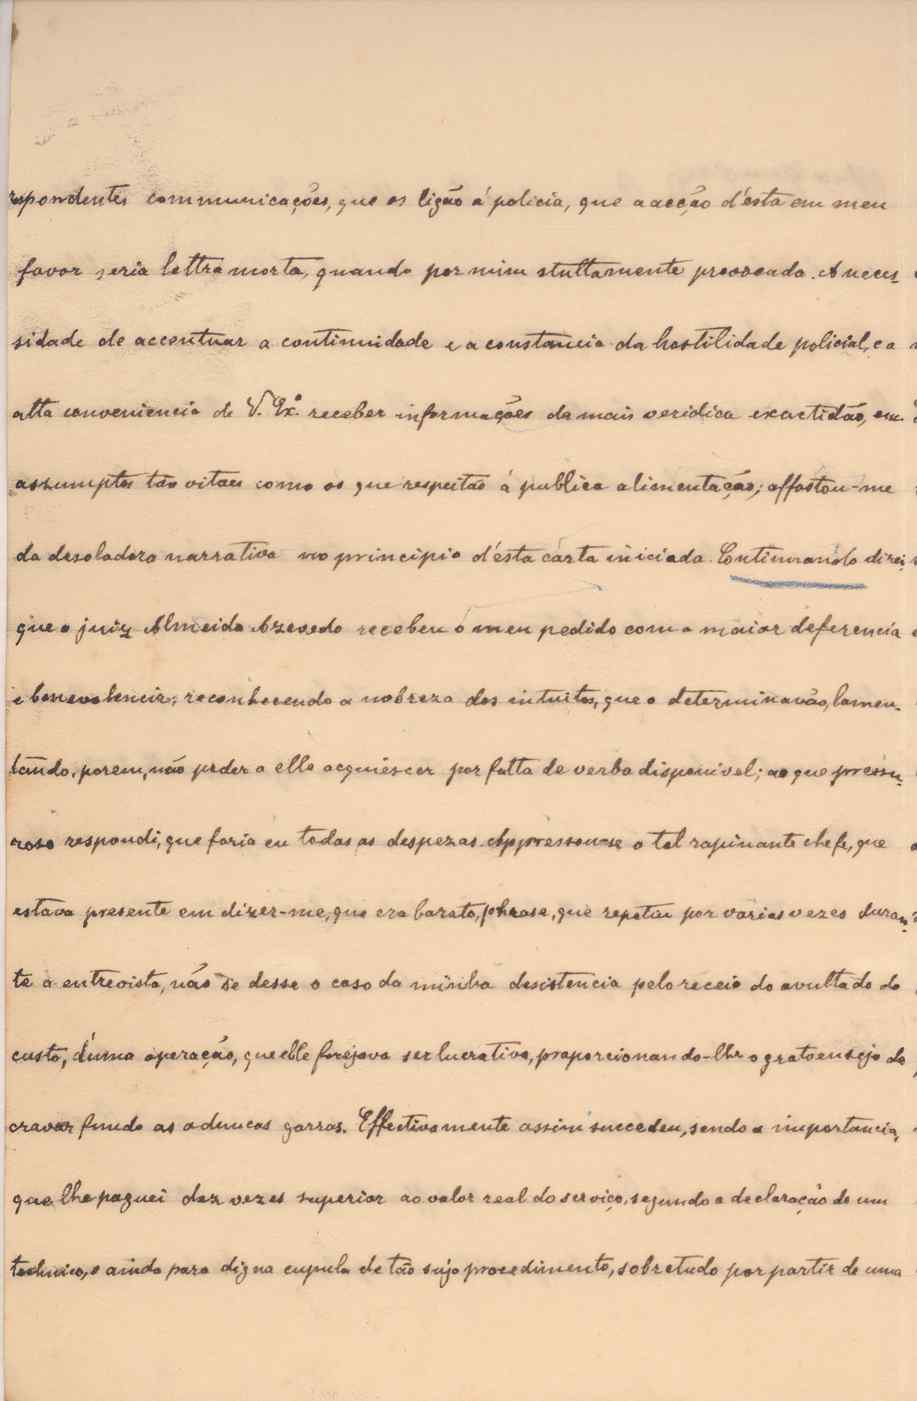 respondentes communicações, que os ligão á policia, que a acção d'ésta em meu
favor seria lettra morta, quando por mim stultamente provocada. A neces-
sidade de accentuar a continuidade e a constancia da hostilidade policial, e a
alta conveniencia de V. Exª. receber informações da mais veridica exactidão, em
assumptos tão vitaes como os que respeitão á publica alimentação; affastou-me
da desoladora narrativa no principio d'ésta cárta iniciada. Continuando direi,
que o juiz Almeida Azevedo recebeu o meu pedido com a maior deferencia
e benevolencia; reconhecendo a nobreza dos intuitos, que o determinavão, lamen-
tando, porem, não poder a elle acquiescer por falta de verba disponivel; ao que pressu-
roso respondi, que faria eu todas as despezas. Appressou-se o tal rapinante chefe, que
estava presente em dizer-me, que era barato, phrase, que repetiu por varias vezes duran-
te a entrevista, não se desse o caso da minha desistencia pelo receio do avultado do
custo, d'uma operação, que elle forejava ser lucrativa, proporcionando-lhe o grato ensejo de
cravar fundo as aduncas garras. Effectivamente assim succedeu, sendo a importancia,
que lhe paguei dez vezes superior ao valor real do serviço, segundo a declaração de um
technico, e ainda para digna cupula de tão sujo procedimento, sobretudo por partir de uma